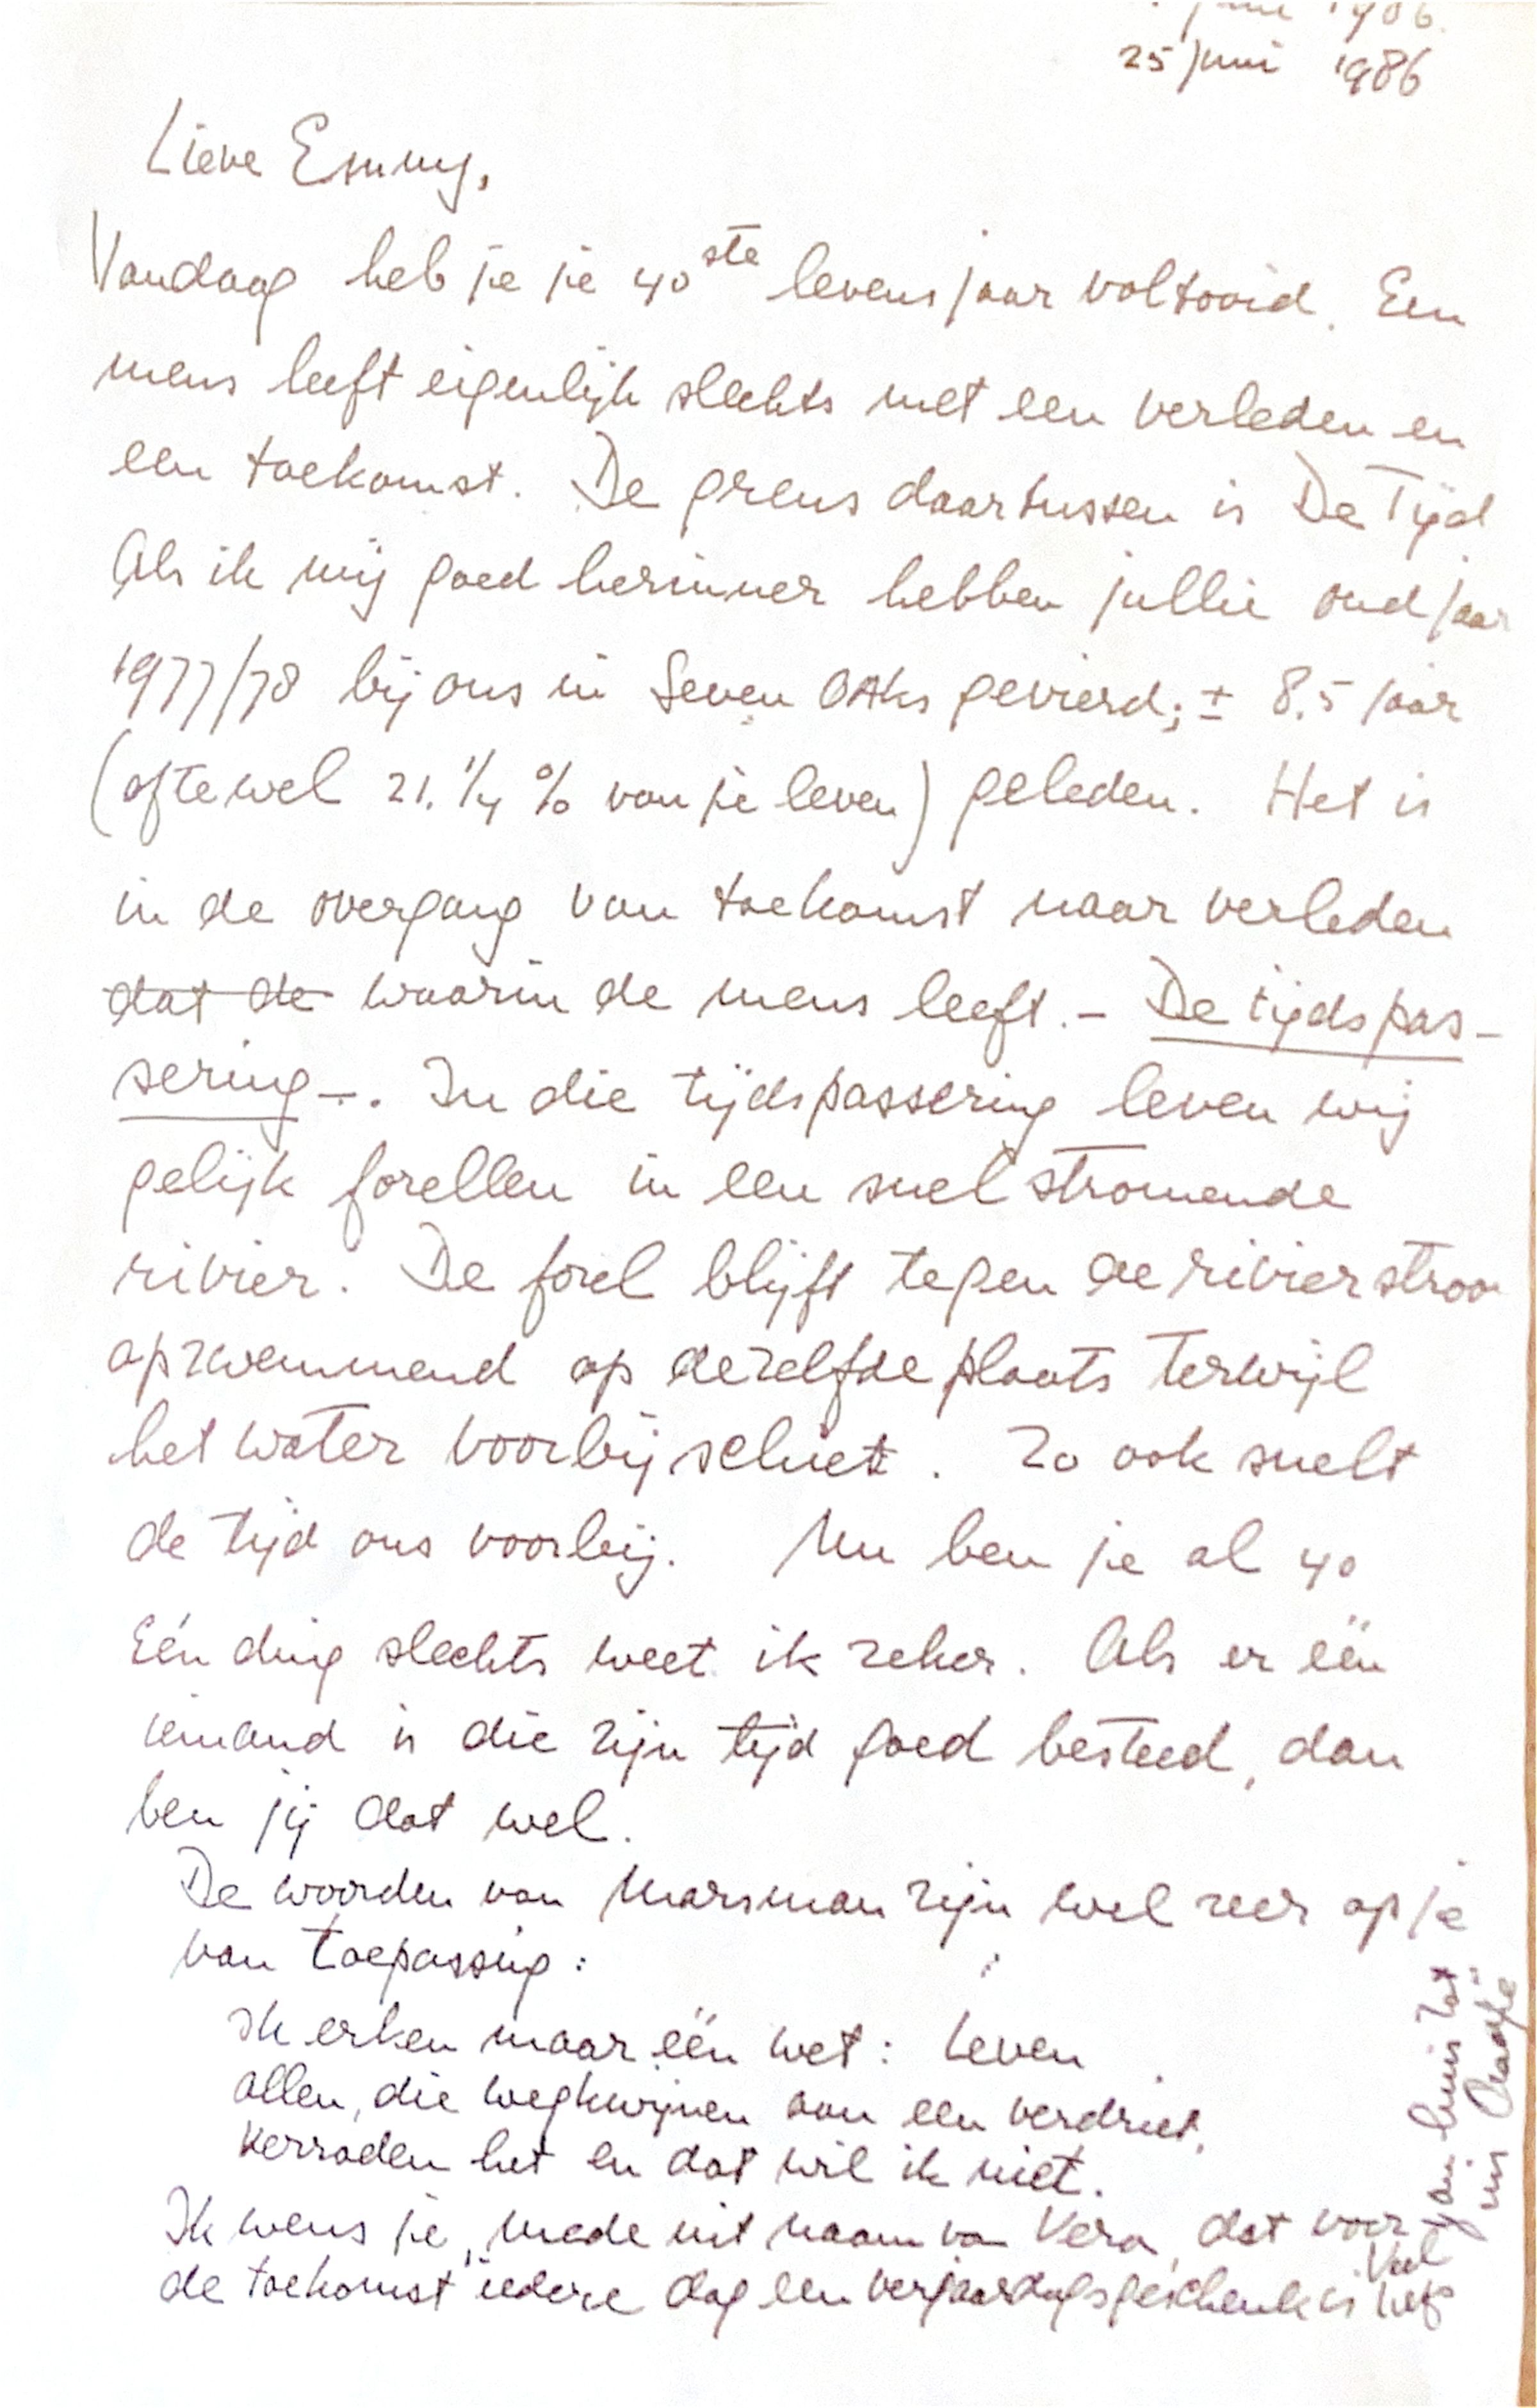 juni 1986.
25 juni 1986
Lieve Emmy,
Vandaag heb je je 40ste levensjaar voltooid. Een
mens leeft eigenlijk slechts met een verleden en
een toekomst. De grens daartussen is De Tijd
Als ik mij goed herinner hebben jullie oud jaar
1977/78 bij ons in Seven OAks gevierd; ± 8.5 jaar
(oftewel 21.1/4 % van je leven) geleden. Het is
in de overgang van toekomst naar verleden
dat de waarin de mens leeft. - De tijdspas-
sering -. In die tijdspassering leven wij
gelijk forellen in een snel stromende
rivier. De forel blijft tegen de rivierstroo
opzwemmend op dezelfde plaats terwijl
het water voorbij schiet. Zo ook snelt
de tijd ons voorbij. Nu ben je al 40
Eén ding slechts weet ik zeker. Als er één
iemand is die zijn tijd goed besteed, dan
ben jij dat wel.
De woorden van Marsman zijn wel zeer op je
van toepassing:
Ik erken maar één wet: leven
allen, die wegkwijnen aan een verdriet,
verraden het en dat wil ik niet.
Ik wens je, mede uit naam va Vera, dat voor
de toekomst iedere dag een verjaardagsgeschenk is
Veel
liefs
van huis tot